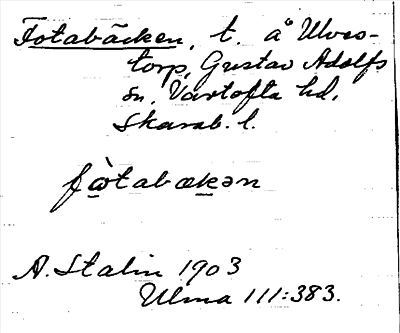 Fotabäcken, t. å Ulves-
torp, Gustav Adolfs
sn, Vartofta hd,
Skarab. l.
fὼtabækən
A. Stalin 1903
Ulma 111:383.